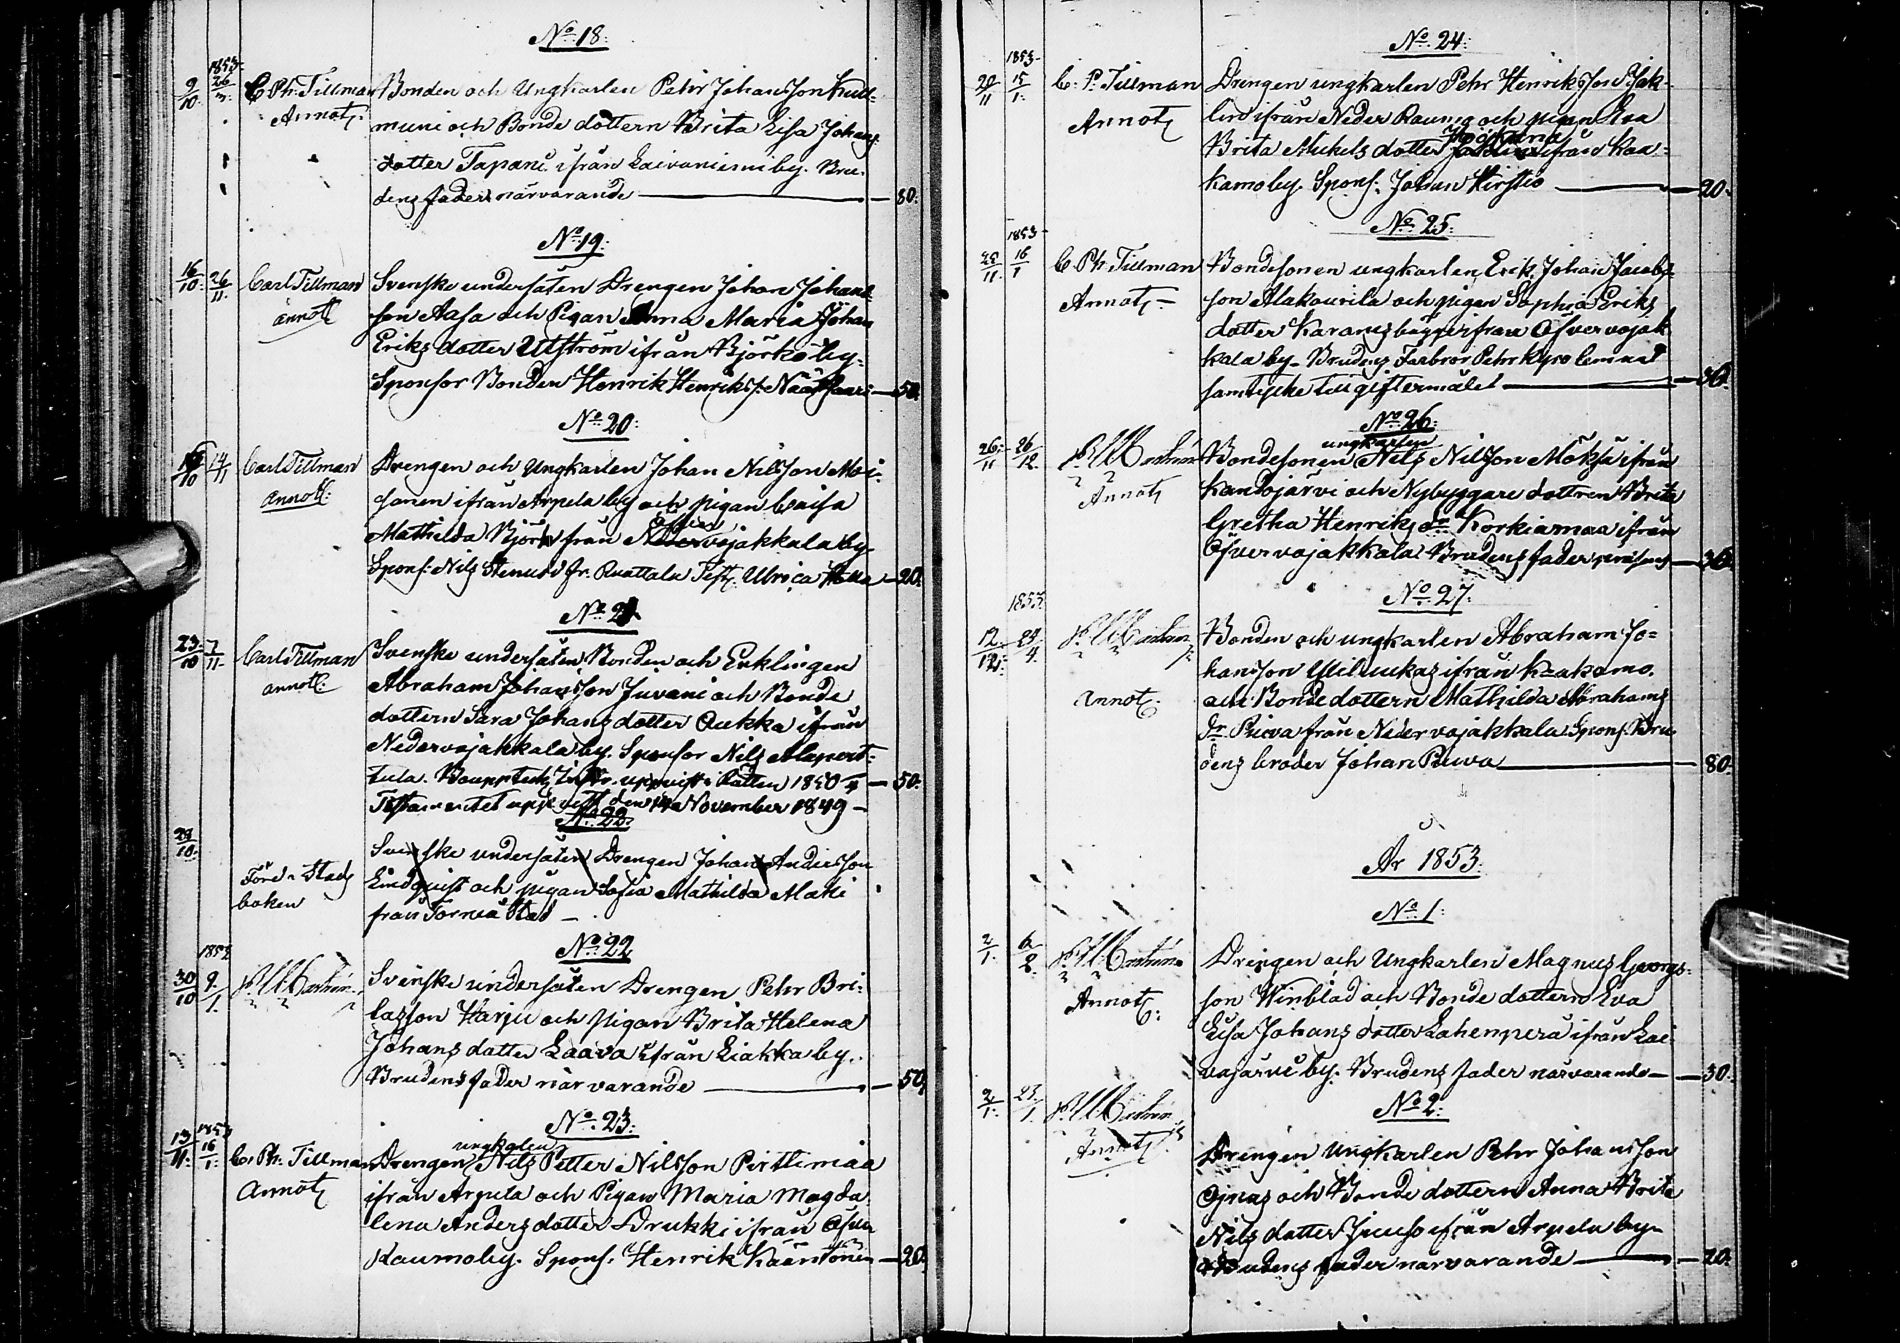 No 18:
9/10. 1853 26/3. C Ph: Tillman Bonden och Ungkarlen Pehr Johansson
Annot. muni och Bonde dottern Brita Lisa Johans
dotter Tapani ifrån Laivaniemi by. Bru-
dens fader närvarande — 80.
No 19:
16/10. 26/11. Carl Tillman Svenske undersåten Drengen Johan Johans
annot son Aasa och Pigan Anna Maria Johan
Eriks dotter Utström ifrån Björkö by.
Sponsor Bonden Henrik Henrikss. — 50.
No 20:
16/10 14/11 Carl Tillman Drengen och Ungkarlen Johan Nilsson Moi-
annot: sanen ifrån Arpela by och pigan Caisa
Mathilda Björk från Öfver vojakkala by
Spons: Nils Stenud fr. Test. Ulrica — 20.
No 21
23/10 7/11. Carl Tillman Svenske undersåten Bonden och Enklingen
annot: Abraham Johansson Juvani och Bonde
dottern Sara Johans dotter Qukka ifrån
Nedervojakkala by. Sponsor Nils Alapert-
tula. Rätten 1850 — 50.
Testamentet den November 1849 —
No 22.
29/10. Svenske undersåten Drengen Johan Andersson
Förd i Stads Lindquist och pigan Sofia Mathilda Maki
boken från Torneå Stad —
No 22
30/10 9/1. Svenske undersåten Drengen Pehr Bri-
tasson Harju och pigan Brita Helena
Johans dotter Laava ifrån Liakka by.
Brudens fader närvarande — 50,
No. 23:
ungkarlen
13/11. 1853 16/1. C. Ph. Tillman Drengen Nils Petter Nilsson Pirttimaa
Annot ifrån Arpela och Pigan Maria Magda
lena Anders dotter Drukki ifrån Öfver
Raumo by. Spons. Henrik — 20.
No. 24:
1853 15/1. C: P: Tillman Drengen ungkarlen Pehr Henriksson
Annot ifrån Neder Raumo och pigan Eva
Brita Mickels dotter ifrån Kaa-
kamo by. Spons: Johan Kirstio — 20.
No. 25:
25/11. 1853 16/1 C. Ph. Tillman Bondesonen ungkarlen Erik Johan Jacobs
Annot — son Alakourila och pigan Sophia Eriks
dotter från Öfver vojak
kala by. Brudens Farbror Pehr Kyrö lemnat
samtycke till giftermålet — 30.
No. 26:
ungkarlen
26/11 26/12. Bondesonen Nils Nilsson Möksä ifrån
Annot Kandojärvi och Nybyggare dottren Brita
Gretha Henriks dr Korkiamaa ifrån
Öfver vojakkala Brudens fader — 30.
No. 27.
12/12. 1853. 24/4. Bonden och ungkarlen Abraham Jo-
hansson ifrån Kaakamo.
Annot. och Bonde dottern Mathilda Abrahams
dr Ruova från Neder vojakkala Spons: Bru
dens broder Johan — 80.
År 1853.
No. 1:
2/1. 6/2. Drengen och Ungkarlen Magnus Georgs-
Annot. son Winblad och Bonde dottern Eva
Lisa Johans dotter Lahenperä ifrån Lai
vajärvi by. Brudens fader närvarande — 30.
No. 2:
2/1. 23/1. Drengen Ungkarlen Pehr Johansson
Annot och Bonde dottern Anna Brita
Nils dotter ifrån Arpela by
Brudens fader närvarande — 20.